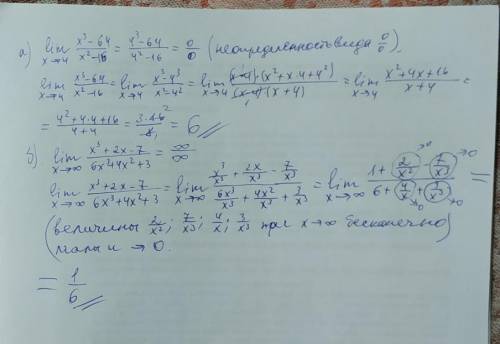 а) lim x→4 (x³-64)/(x²-16) = (4³-64)/(4²-16) = 0/0 (неопределенность вида 0/0)
lim x→4 (x³-64)/(x²-16) = lim x→4 (x³-4³)/(x²-4²) = lim x→4 (x-4)·(x²+x·4+4²)/(x-4)(x+4) = lim x→4 (x²+4x+16)/(x+4) =
= (4²+4·4+16)/(4+4) = 3·16²/8₁ = 6
б) lim x→∞ (x³+2x-7)/(6x³+4x²+3) = ∞/∞
lim x→∞ (x³+2x-7)/(6x³+4x²+3) = lim x→∞ (x³/x³ + 2x/x³ - 7/x³)/(6x³/x³ + 4x²/x³ + 3/x³) = lim x→∞ (1 + 2/x² →0 - 7/x³ →0)/(6 + 4/x →0 + 3/x³ →0) =
(величины 2/x²; 7/x³; 4/x; 3/x³ при x→∞ бесконечно
малы и →0.
= 1/6